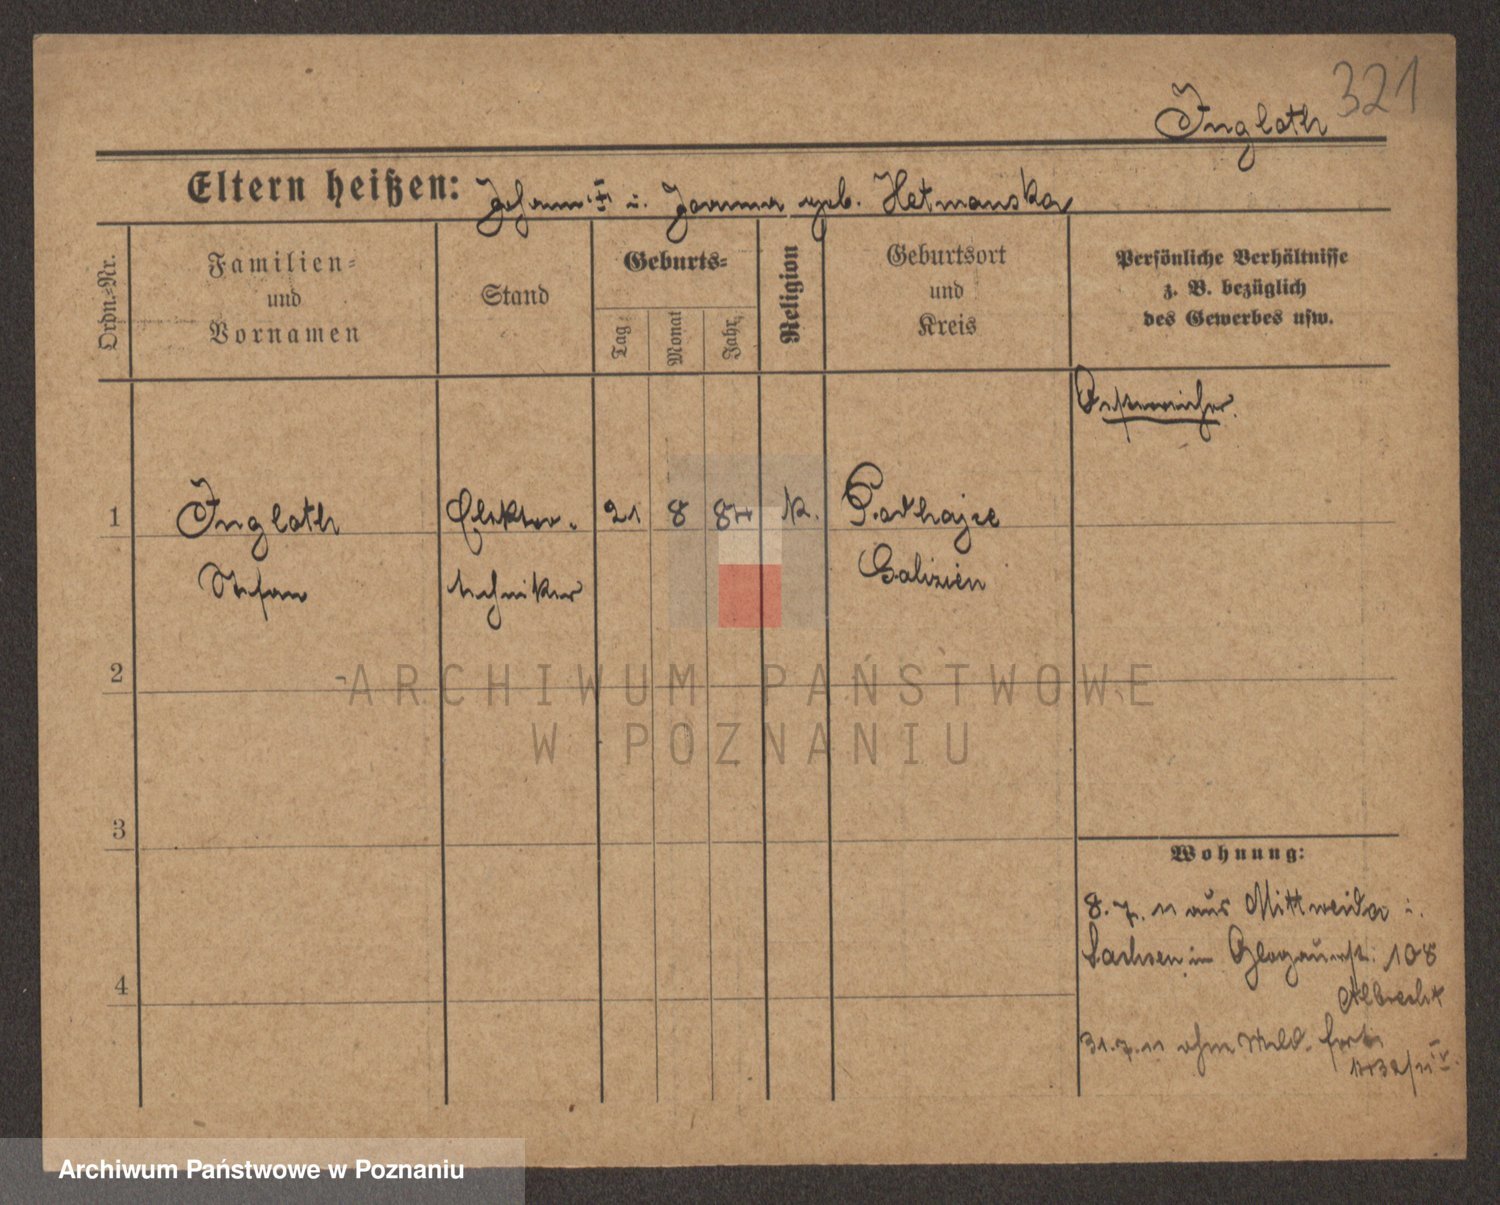 321
Ingloth
Eltern heißen: Johann † u. Joanna geb. Hetmanska
Ordn.-Nr.
Familien-
und
Vornamen
Stand
Geburts-
Tag
Monat
Jahr
Religion
Geburtsort
und
Kreis
Persönliche Verhältnisse
z. B. bezüglich
des Gewerbes usw.
Oesterreicher.
1 Ingloth Elektro- 21 8 84 k. Podhajce
Stefan techniker Galizien
2
ARCHIWUM PAŃSTWOWE
W POZNANIU
3
Wohnung:
8. 7. 11 aus Mittweida i.
Sachsen in Glogauerst. 108
4
Albrecht
31. 7. 11 ohne Meld. fort
Archiwum Państwowe w Poznaniu